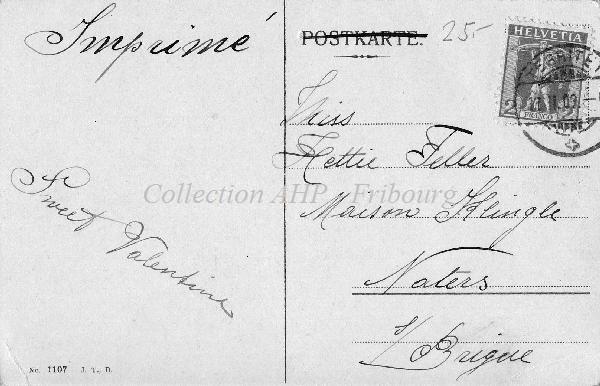 Imprimé
POSTKARTE.
25.-
HELVETIA
2
FRANCO
Miss
Hettie Feller
Maison Klingle
Naters
s/ Brigue
Sweet Valentine
Collection AHP - Fribourg
No. 1107 J. T., D.